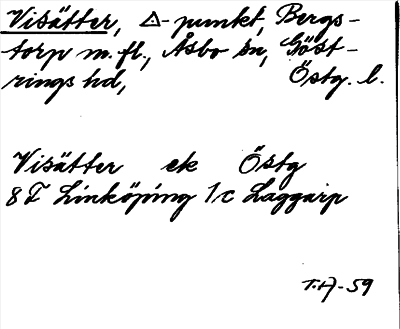 Visätter, △-punkt, Bergs-
torp m.fl., Åsbo sn, Göst-
rings hd, Östg. l.
Visätter ek Östg
8F Linköping 1c Laggarp
T.H-59